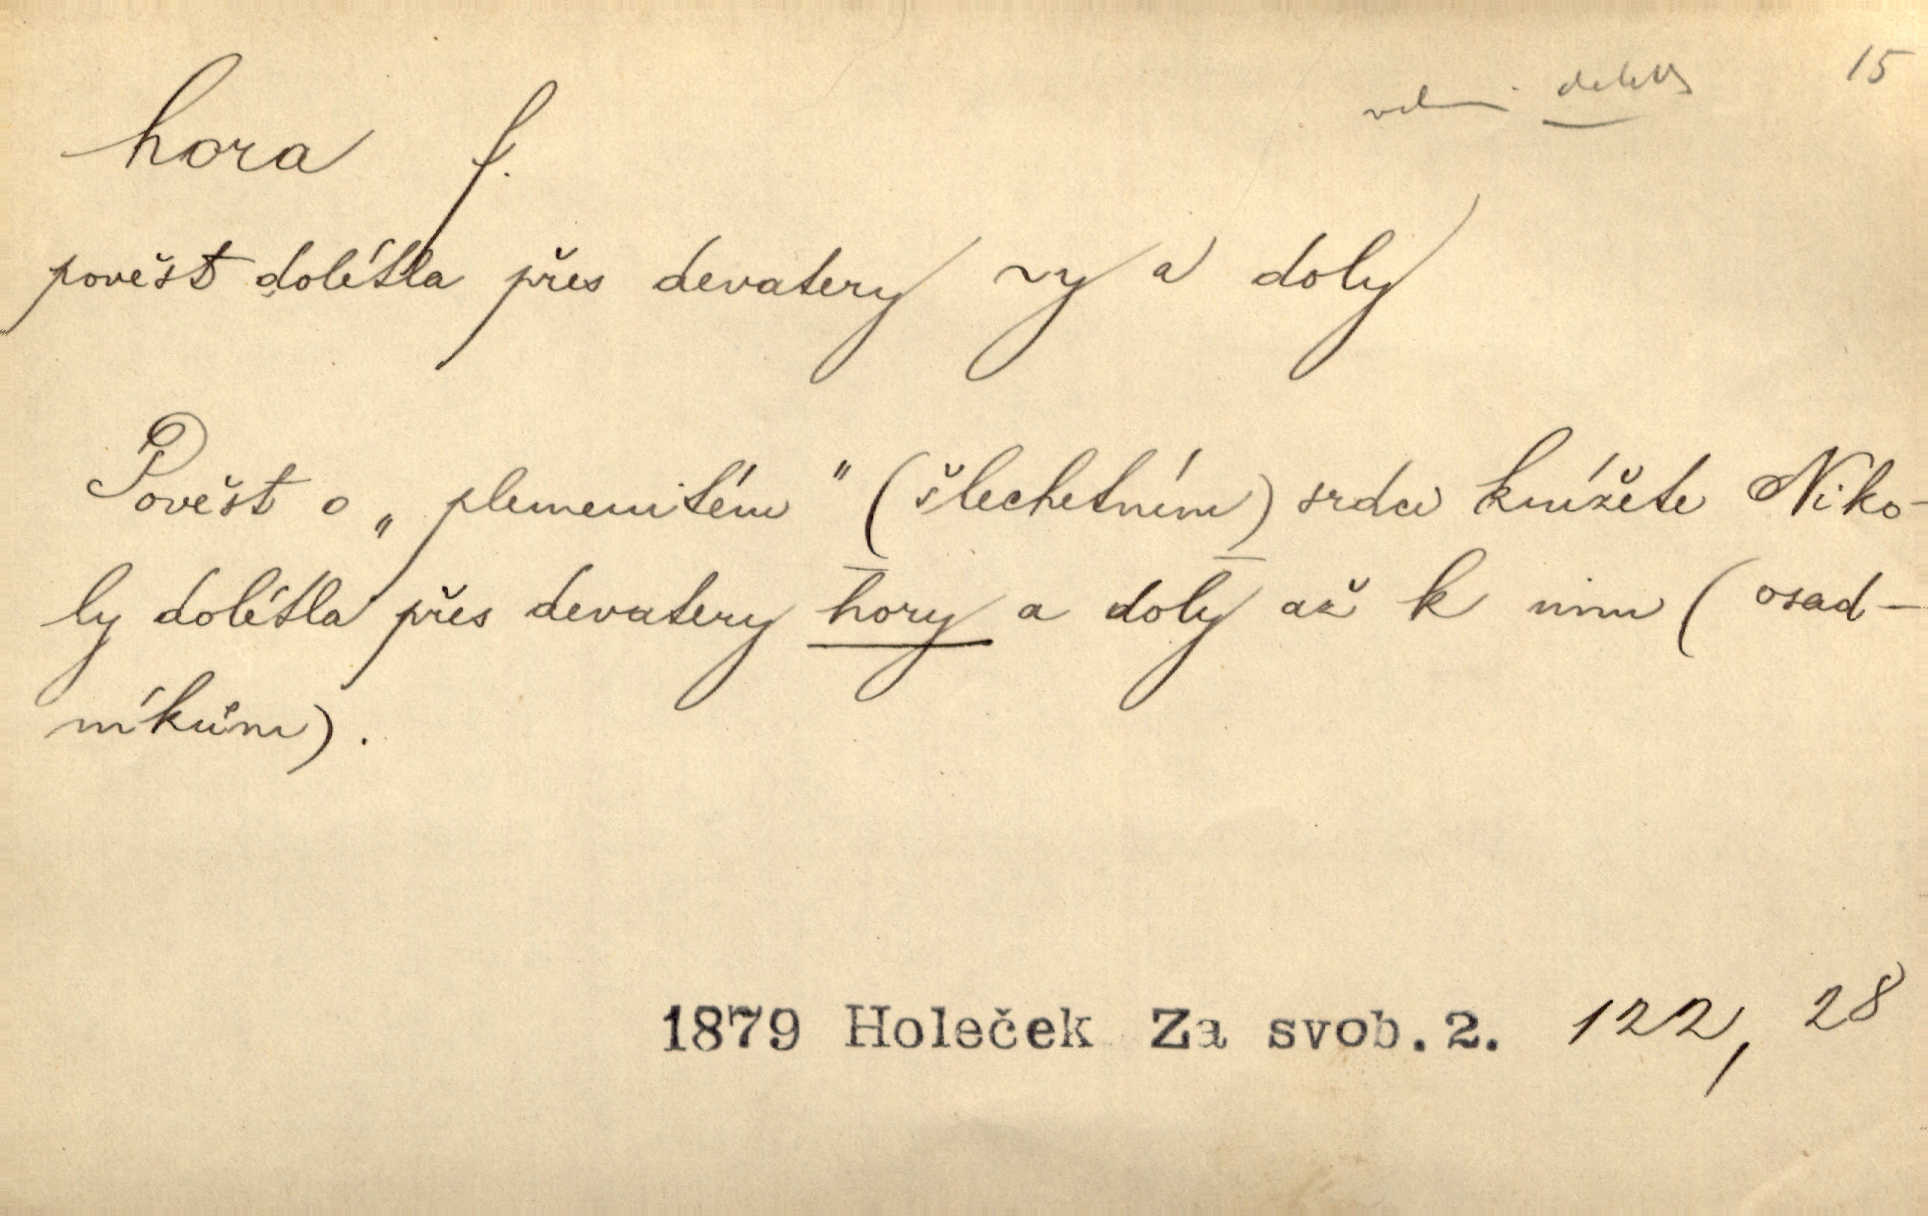 15
hora f.
pověst dolétla přes devatery ~y a doly
Pověst o „plemenitém" (šlechetném) srdci knížete Niko-
ly dolétla přes devatery hory a doly až k nim (osad-
níkům).
1879 Holeček Za svob. 2. 122, 28